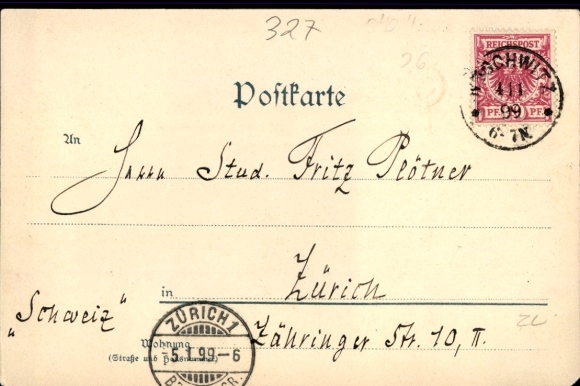 327
REICHSPOST
Postkarte
4 1 1
99
6-7N
An
Herrn Stud. Fritz Plötner
in Zürich
„Schweiz"
Zähringer Str. 10, II.
Wohnung
(Straße und Hausnummer)
ZÜRICH 1
5.I.99-6